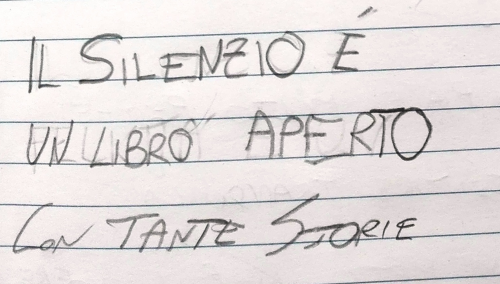 IL SILENZIO É
UN LIBRO APERTO
CON TANTE STORIE